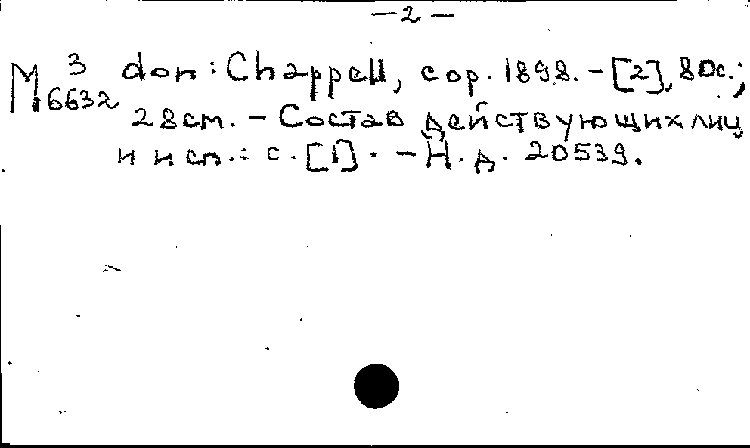 — 2 —
М 3 don : Chappell, cop. 1898. – [2], 80 с.;
6632 28 cm. – Состав действующих лиц
и исп.: с. [1]. – Н. д. 20539.